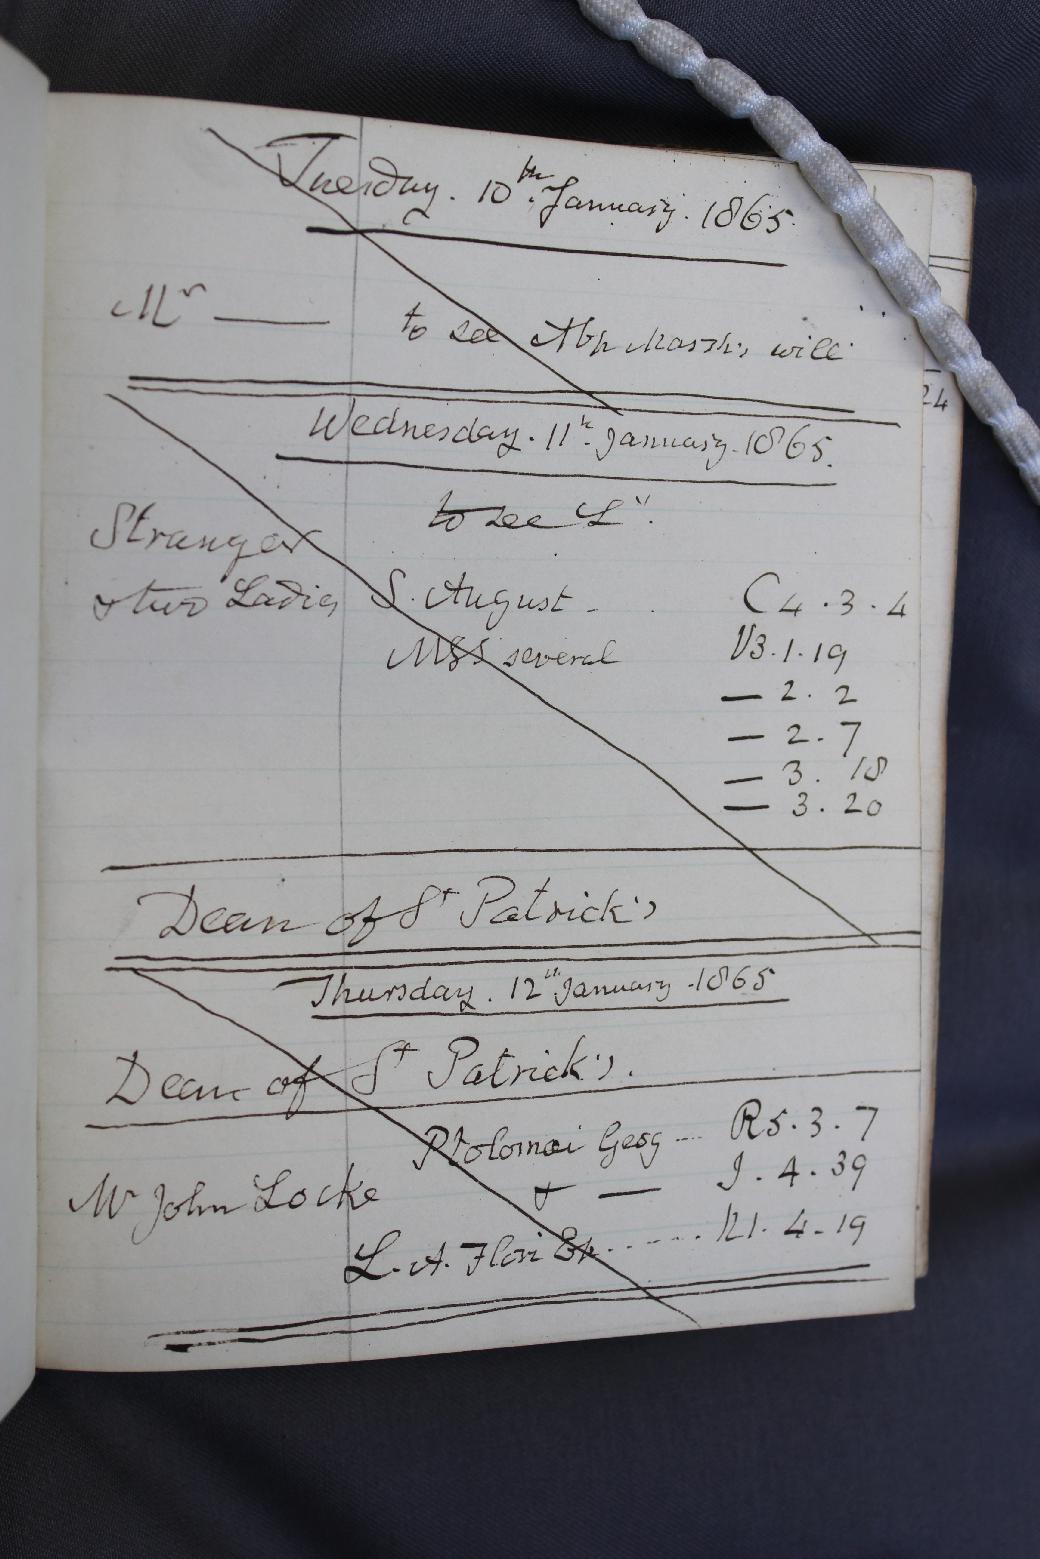 Tuesday. 10th. January. 1865.
Mr —— to see Abp Marsh's will
24
Wednesday. 11th. January. 1865.
to see Ly.
Stranger
& two Ladies S. August - . C 4 . 3 . 4
MSS several V3. 1. 19
— 2. 2
— 2. 7
— 3. 18
— 3. 20
Dean of St Patrick's
Thursday. 12th January. 1865
Dean of St Patrick's.
Ptolomæi Geog --- R5. 3. 7
Mr John Locke & — J. 4. 39
L. A. Flori Ep. ------ N1. 4. 19